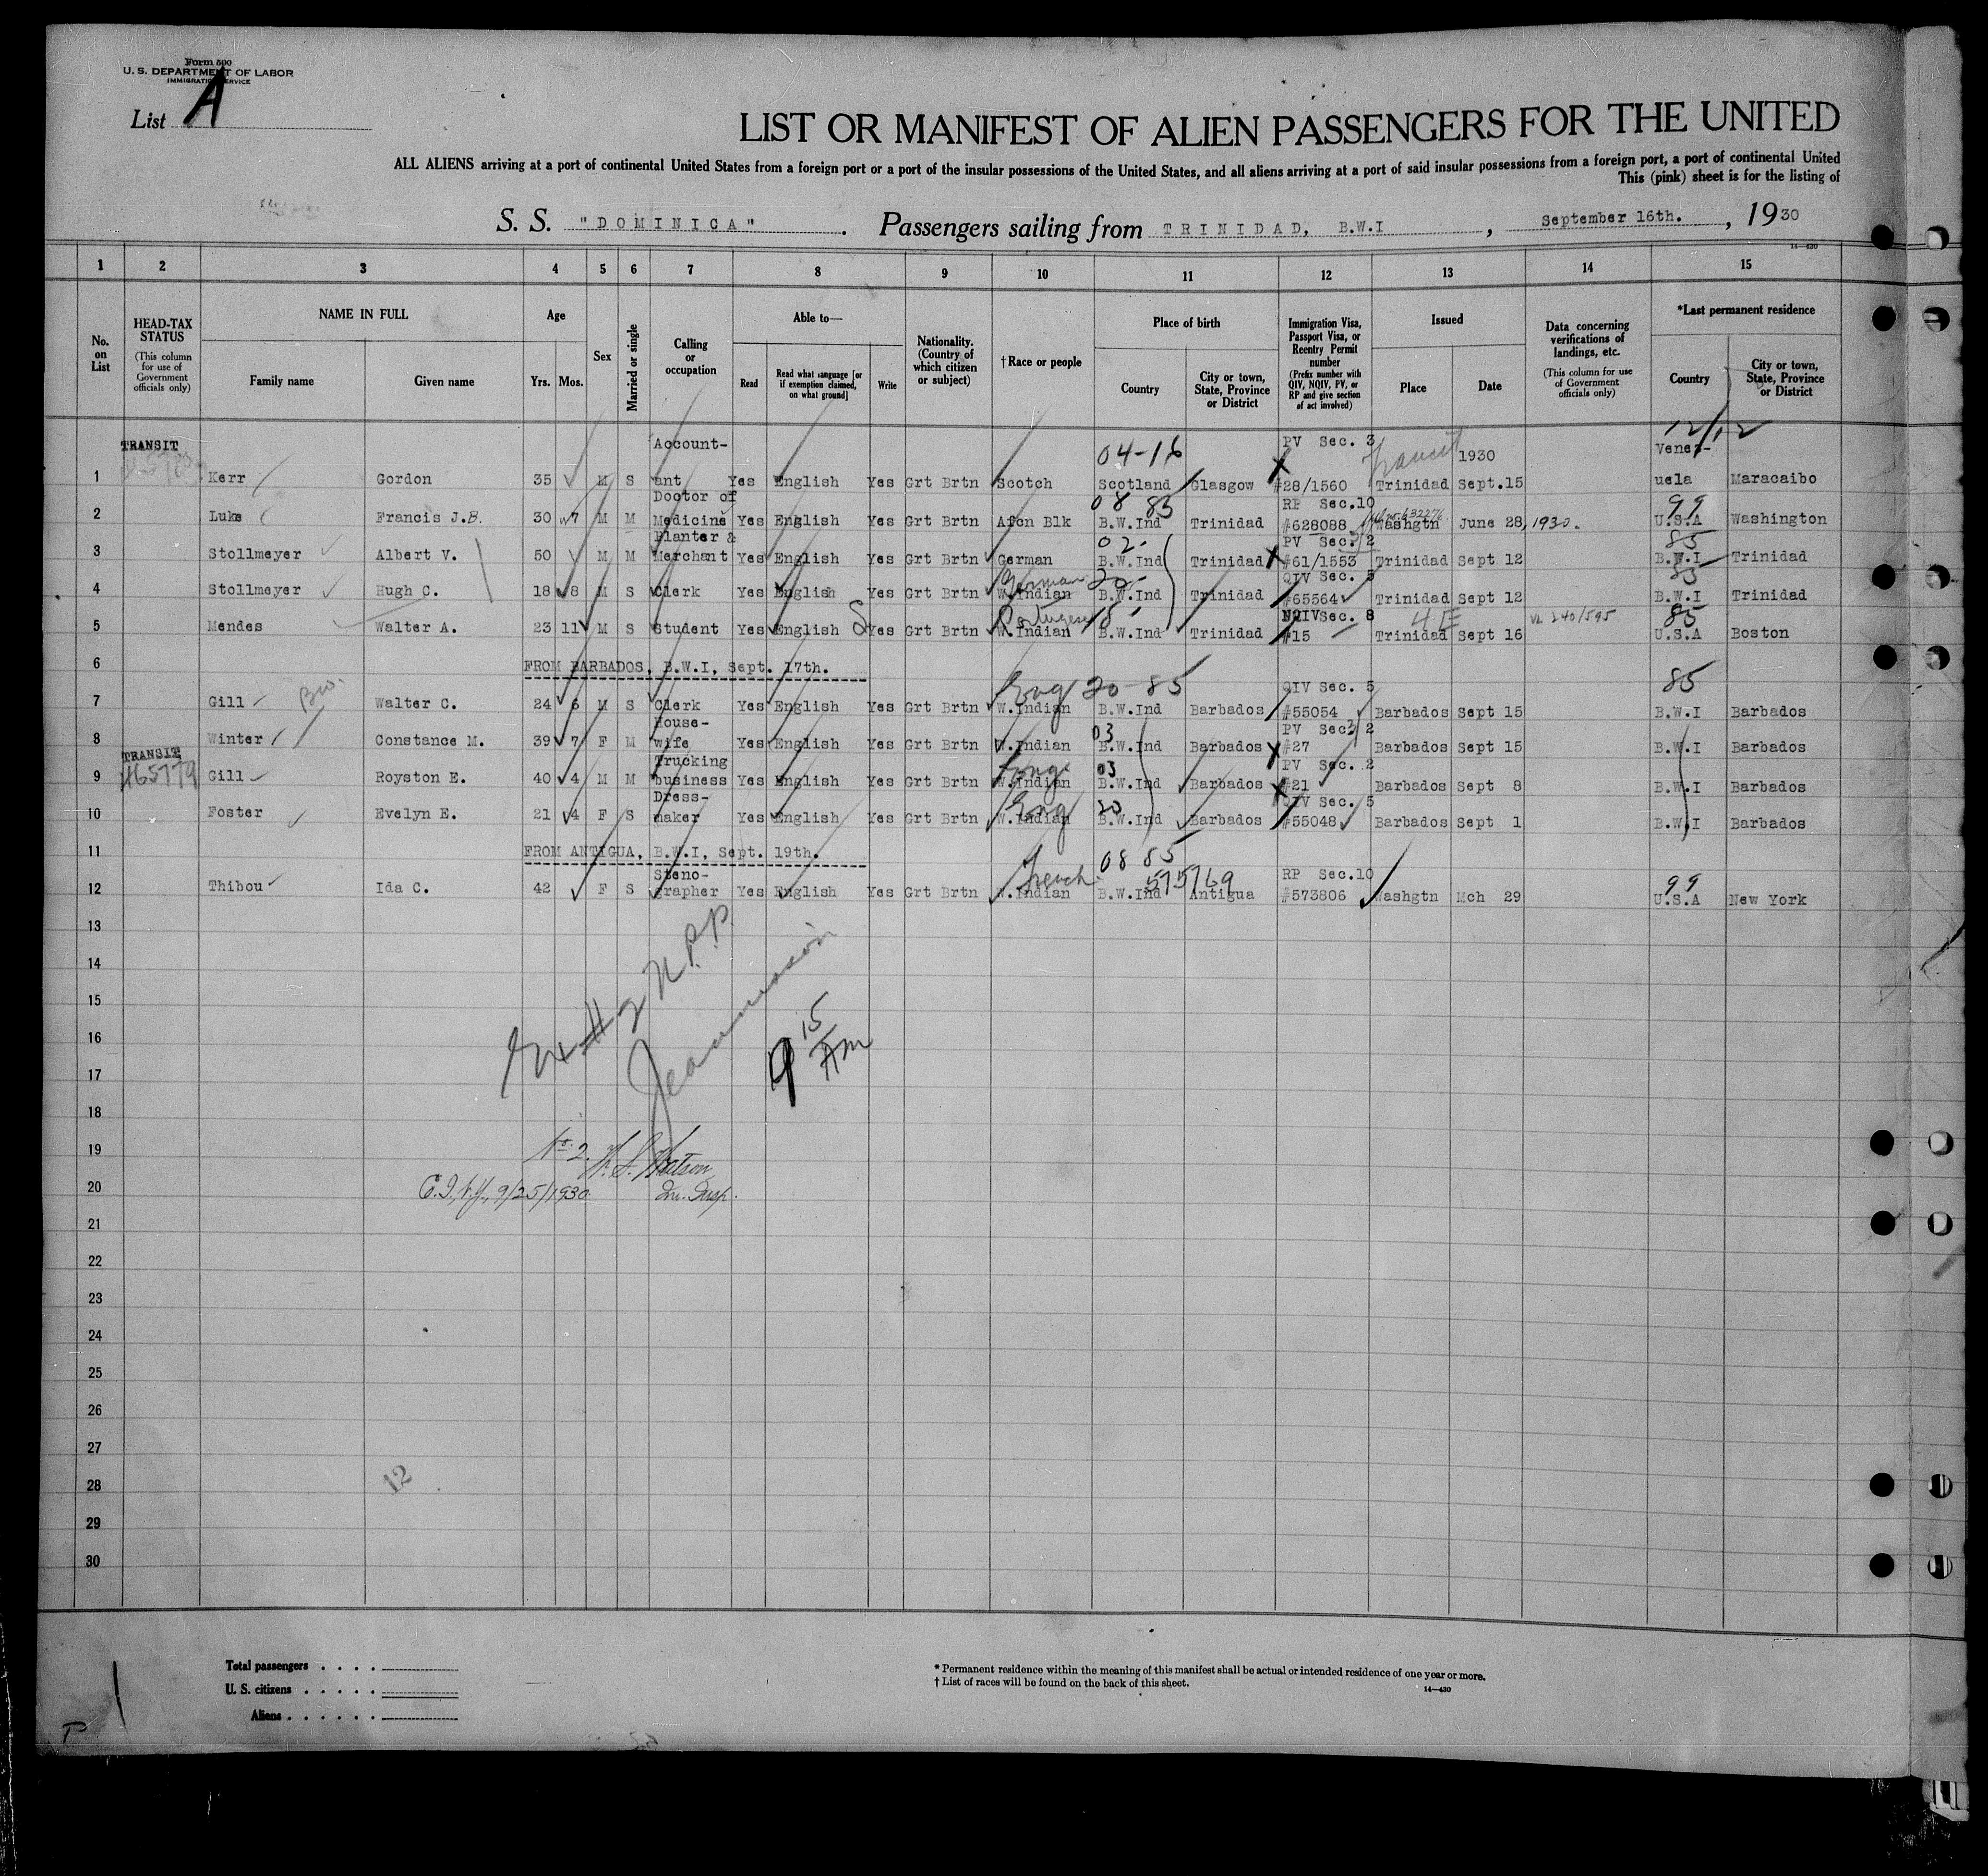 Form 500
U. S. DEPARTMENT OF LABOR
IMMIGRATION SERVICE
List A
LIST OR MANIFEST OF ALIEN PASSENGERS FOR THE UNITED
ALL ALIENS arriving at a port of continental United States from a foreign port or a port of the insular possessions of the United States, and all aliens arriving at a port of said insular possessions from a foreign port, a port of continental United
This (pink) sheet is for the listing of
S. S. "DOMINICA". Passengers sailing from TRINIDAD, B.W.I, September 16th., 1930
14-430
1 2 3 4 5 6 7 8 9 10 11 12 13 14 15
No. on List
HEAD-TAX STATUS (This column for use of Government officials only)
NAME IN FULL
Family name
Given name
Age
Yrs. Mos.
Sex
Married or single
Calling or occupation
Able to—
Read
Read what language [or if exemption claimed, on what ground]
Write
Nationality. (Country of which citizen or subject)
† Race or people
Place of birth
Country
City or town, State, Province or District
Immigration Visa, Passport Visa, or Reentry Permit number (Prefix number with QIV, NQIV, PV, or RP and give section of act involved)
Issued
Place
Date
Data concerning verifications of landings, etc. (This column for use of Government officials only)
*Last permanent residence
Country
City or town, State, Province or District
TRANSIT Account- 04-16 PV Sec. 3 Transit 1930 Venez-
1 Kerr Gordon 35 M S ant Yes English Yes Grt Brtn Scotch Scotland Glasgow #28/1560 Trinidad Sept.15 uela Maracaibo
Doctor of 08 85 RP Sec.10 99
2 Luke Francis J.B. 30 7 M M Medicine Yes English Yes Grt Brtn Afcn Blk B.W.Ind Trinidad #628088 Washgtn June 28, 1930. U.S.A Washington
Planter & 02- PV Sec. 2 85
3 Stollmeyer Albert V. 50 M M Merchant Yes English Yes Grt Brtn German B.W.Ind Trinidad #61/1553 Trinidad Sept 12 B.W.I Trinidad
German 20- QIV Sec. 5 85
4 Stollmeyer Hugh C. 18 8 M S Clerk Yes English Yes Grt Brtn W.Indian B.W.Ind Trinidad #65564 Trinidad Sept 12 B.W.I Trinidad
NQIV Sec. 8 4E VL 240/595 85
5 Mendes Walter A. 23 11 M S Student Yes English Yes Grt Brtn W.Indian B.W.Ind Trinidad #15 Trinidad Sept 16 U.S.A Boston
6 FROM BARBADOS, B.W.I, Sept. 17th.
Eng 20-85 QIV Sec. 5 85
7 Gill Walter C. 24 6 M S Clerk Yes English Yes Grt Brtn W.Indian B.W.Ind Barbados #55054 Barbados Sept 15 B.W.I Barbados
House- 03 PV Sec. 2
8 Winter Constance M. 39 7 F M wife Yes English Yes Grt Brtn W.Indian B.W.Ind Barbados #27 Barbados Sept 15 B.W.I Barbados
TRANSIT Trucking Eng 03 PV Sec. 2
9 465779 Gill Royston E. 40 4 M M business Yes English Yes Grt Brtn W.Indian B.W.Ind Barbados #21 Barbados Sept 8 B.W.I Barbados
Dress- Eng 20 QIV Sec. 5
10 Foster Evelyn E. 21 4 F S maker Yes English Yes Grt Brtn W.Indian B.W.Ind Barbados #55048 Barbados Sept 1 B.W.I Barbados
11 FROM ANTIGUA, B.W.I, Sept. 19th.
Steno- French 08 85 575769 RP Sec.10 99
12 Thibou Ida C. 42 F S grapher Yes English Yes Grt Brtn W.Indian B.W.Ind Antigua #573806 Washgtn Mch 29 U.S.A New York
13
14
15
16 9 15 AM
17
18
19 No 2.
20 9/25/1930 Im. Insp.
21
22
23
24
25
26
27
28 12
29
30
Total passengers
U. S. citizens
Aliens
* Permanent residence within the meaning of this manifest shall be actual or intended residence of one year or more.
† List of races will be found on the back of this sheet.
14—430